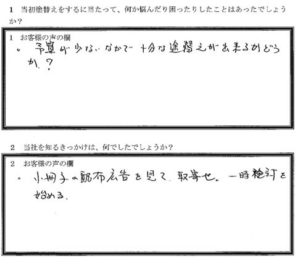 1 当初塗替えをするに当たって、何か悩んだり困ったりしたことはあったでしょうか？
1 お客様の声の欄
。予算が少ないなかで十分な塗替えが出来るかどうか。？
2 当社を知るきっかけは、何でしたでしょうか？
2 お客様の声の欄
・小冊子の配布広告を見て、取寄せ。一時検討を
始める。